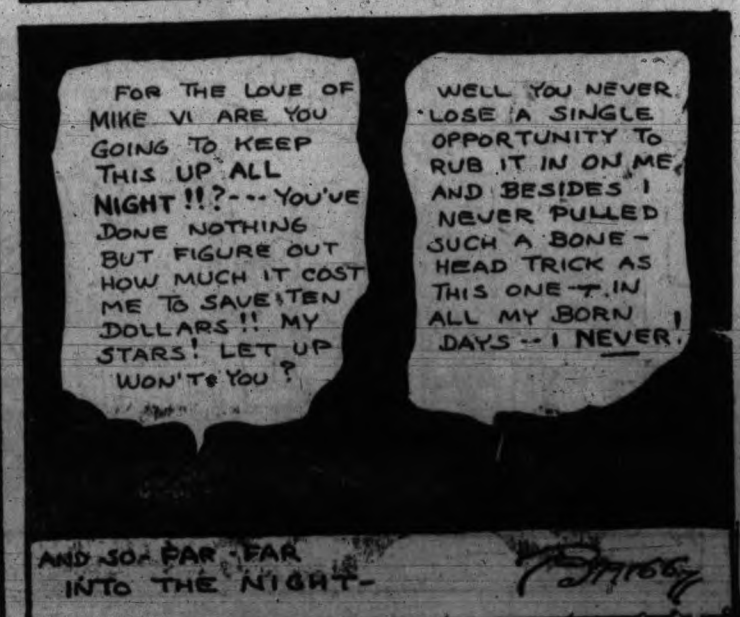 FOR THE LOVE OF
MIKE VI ARE YOU
GOING TO KEEP
THIS UP ALL
NIGHT!!?--- YOU'VE
DONE NOTHING
BUT FIGURE OUT
HOW MUCH IT COST
ME TO SAVE TEN
DOLLARS!! MY
STARS! LET UP
WON'T YOU?
WELL YOU NEVER
LOSE A SINGLE
OPPORTUNITY TO
RUB IT IN ON ME,
AND BESIDES I
NEVER PULLED
SUCH A BONE-
HEAD TRICK AS
THIS ONE - IN
ALL MY BORN
DAYS -- I NEVER!
AND SO FAR - FAR
INTO THE NIGHT-